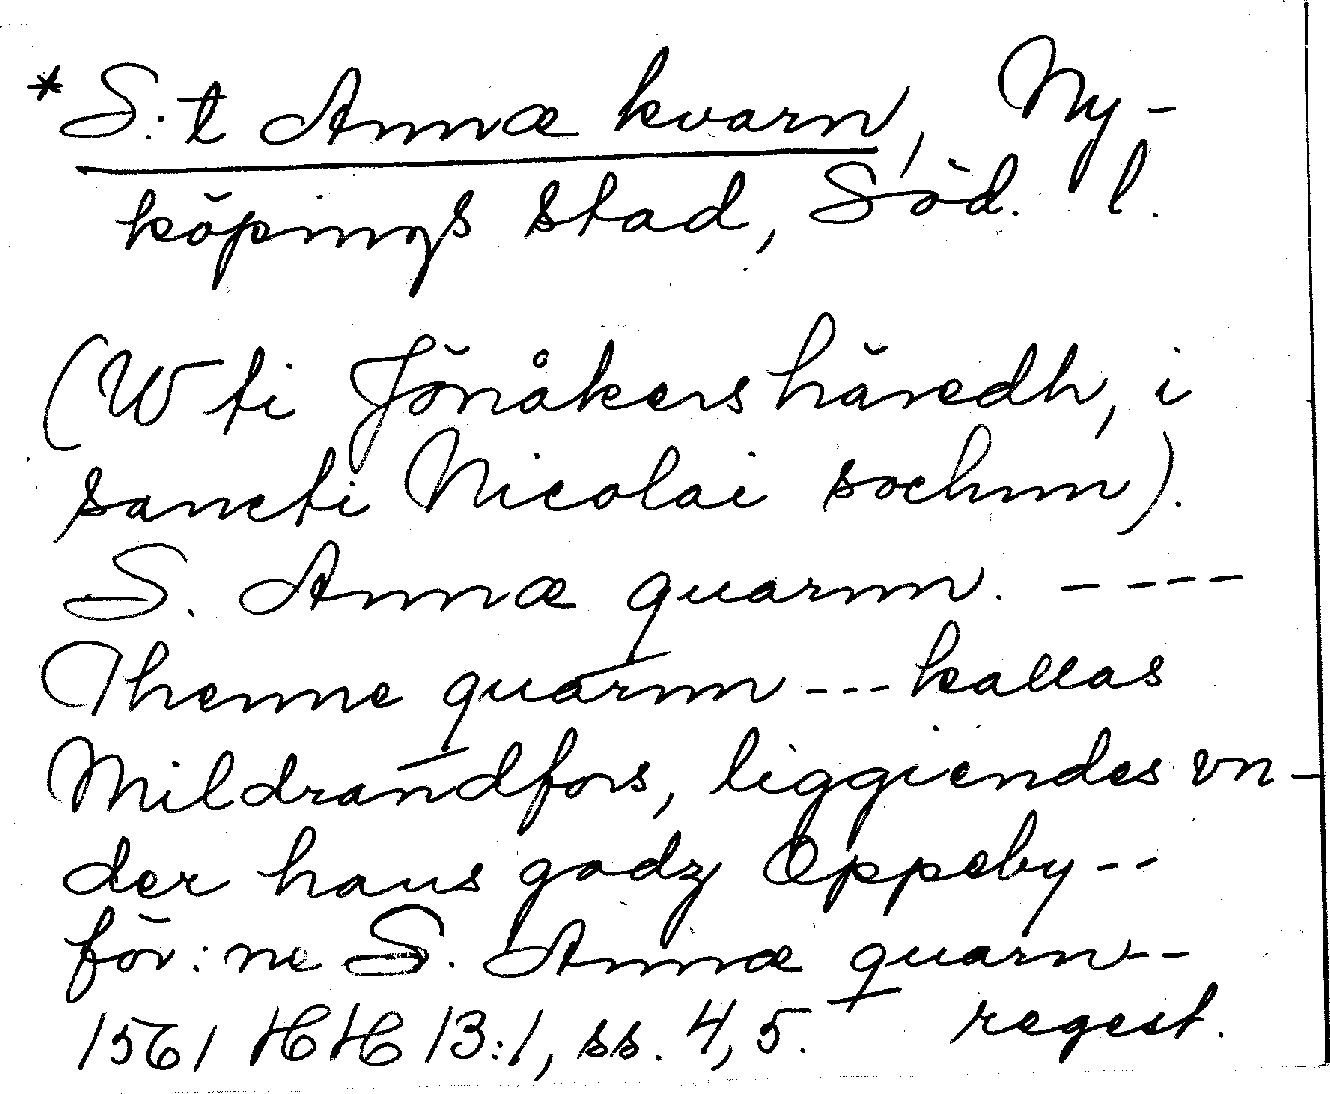 *S:t Annæ kvarn, Ny-
köpings stad, Söd. l.
(Wti Jönåkers häredh, i
sancti Nicolai sochnn).
S. Annæ quarnn. ----
Thenne quarnn --- kallas
Mildrandfors, liggiendes vn-
der hans godz Oppeby --
för:ne S. Annæ quarn --
1561 HH 13:1, ss. 4, 5. regest.